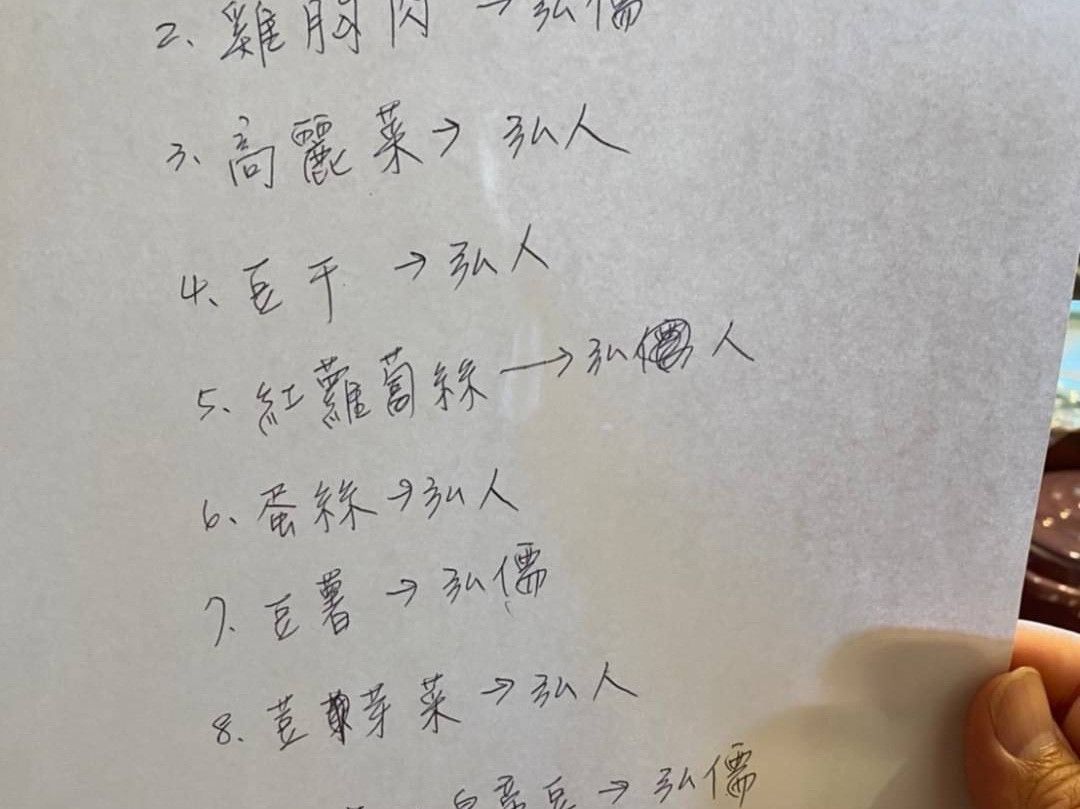 2、雞胸肉→弘儒
3、高麗菜→弘人
4、豆干→弘人
5、紅蘿蔔絲→弘人
6、蛋絲→弘人
7、豆薯→弘儒
8、荳芽菜→弘人
豆→弘儒